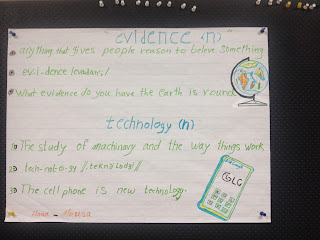 evidence (n)
anything that gives people reason to beleve something
ev.i.dence
What evidence do you have the Earth is round
technology (n)
1) The study of machinary and the way things work
2) tech.nol.o.gy
3) The cell phone is new technology.
GLG